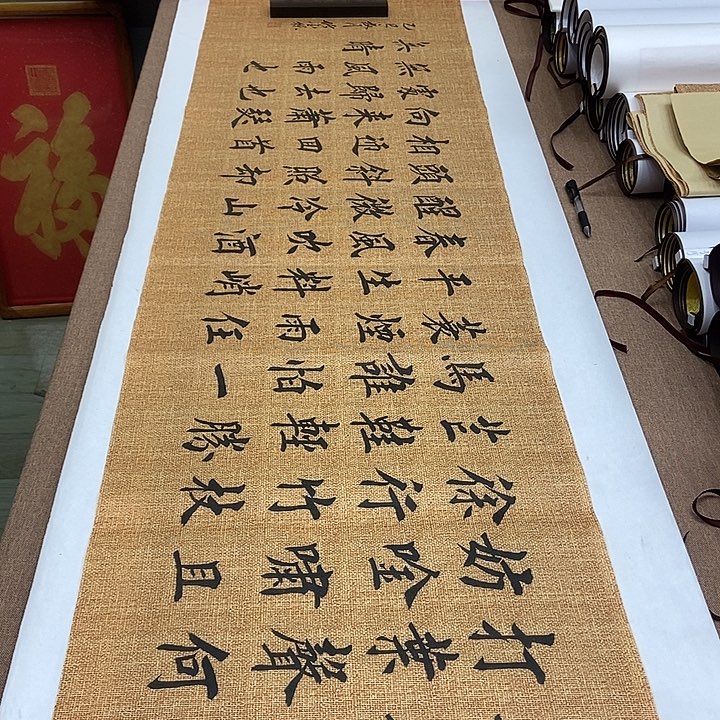 打葉聲何
妨吟嘯且
徐行竹杖
芒鞋輕勝
馬誰怕一
蓑煙雨任
平生料峭
春風吹酒
醒微冷山
頭斜照却
相迎回首
向来蕭瑟
處歸去也
無風雨也
無晴
乙巳年